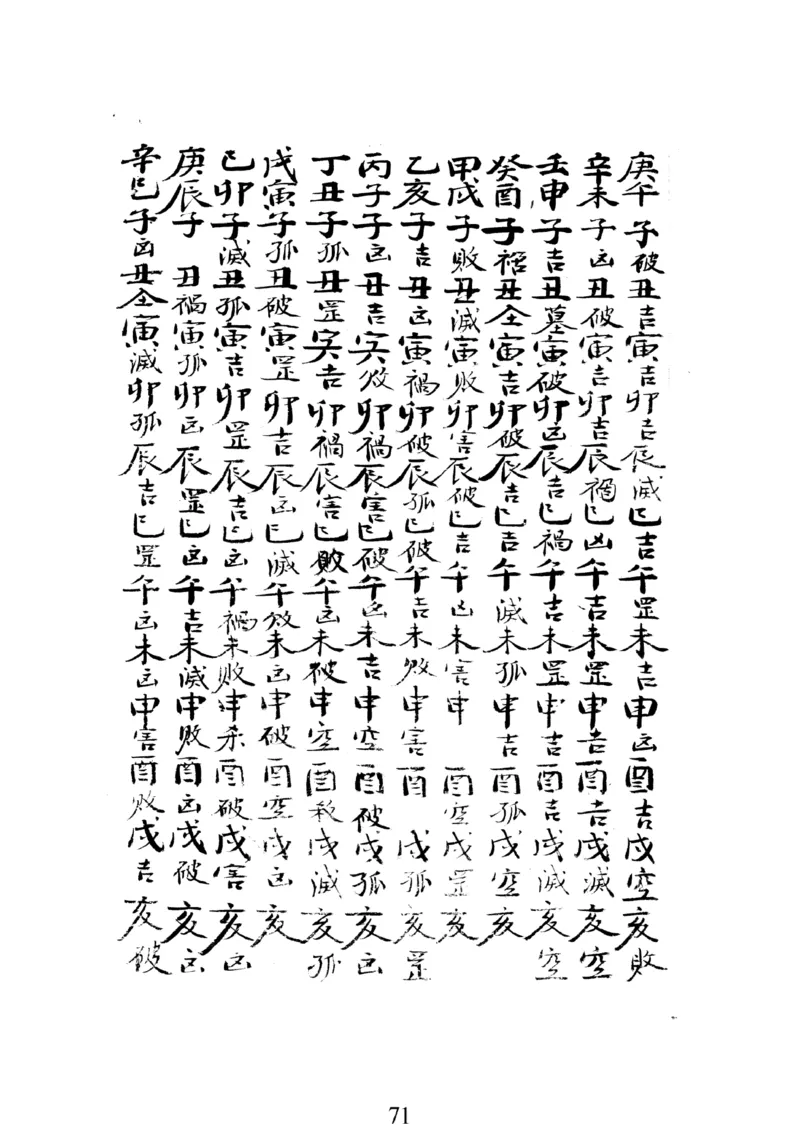 庚午子破丑吉寅吉卯吉辰滅巳吉午罡未吉申凶酉吉戌空亥敗
辛未子凶丑破寅吉卯吉辰禍巳凶午吉未罡申吉酉吉戌滅亥空
壬申子吉丑墓寅破卯凶辰吉巳禍午吉未罡申吉酉吉戌滅亥空
癸酉子禍丑全寅吉卯破辰吉巳吉午滅未孤申吉酉孤戌空亥
甲戌子敗丑滅寅敗卯害辰破巳吉午凶未害申酉空戌罡亥
乙亥子吉丑凶寅禍卯破辰孤巳破午吉未敗申害酉戌孤亥罡
丙子子凶丑吉寅敗卯禍辰害巳破午凶未吉申空酉破戌孤亥凶
丁丑子孤丑罡寅吉卯禍辰害巳敗午凶未破申空酉殺戌滅亥孤
戊寅子孤丑破寅罡卯吉辰凶巳滅午敗未凶申破酉空戌凶亥
己卯子滅丑孤寅吉卯罡辰吉巳凶午禍未敗申杀酉破戌害亥凶
庚辰子丑禍寅孤卯凶辰罡巳凶午吉未滅申敗酉凶戌破亥凶
辛巳子凶丑全寅滅卯孤辰吉巳罡午凶未凶申害酉敗戌吉亥破
71